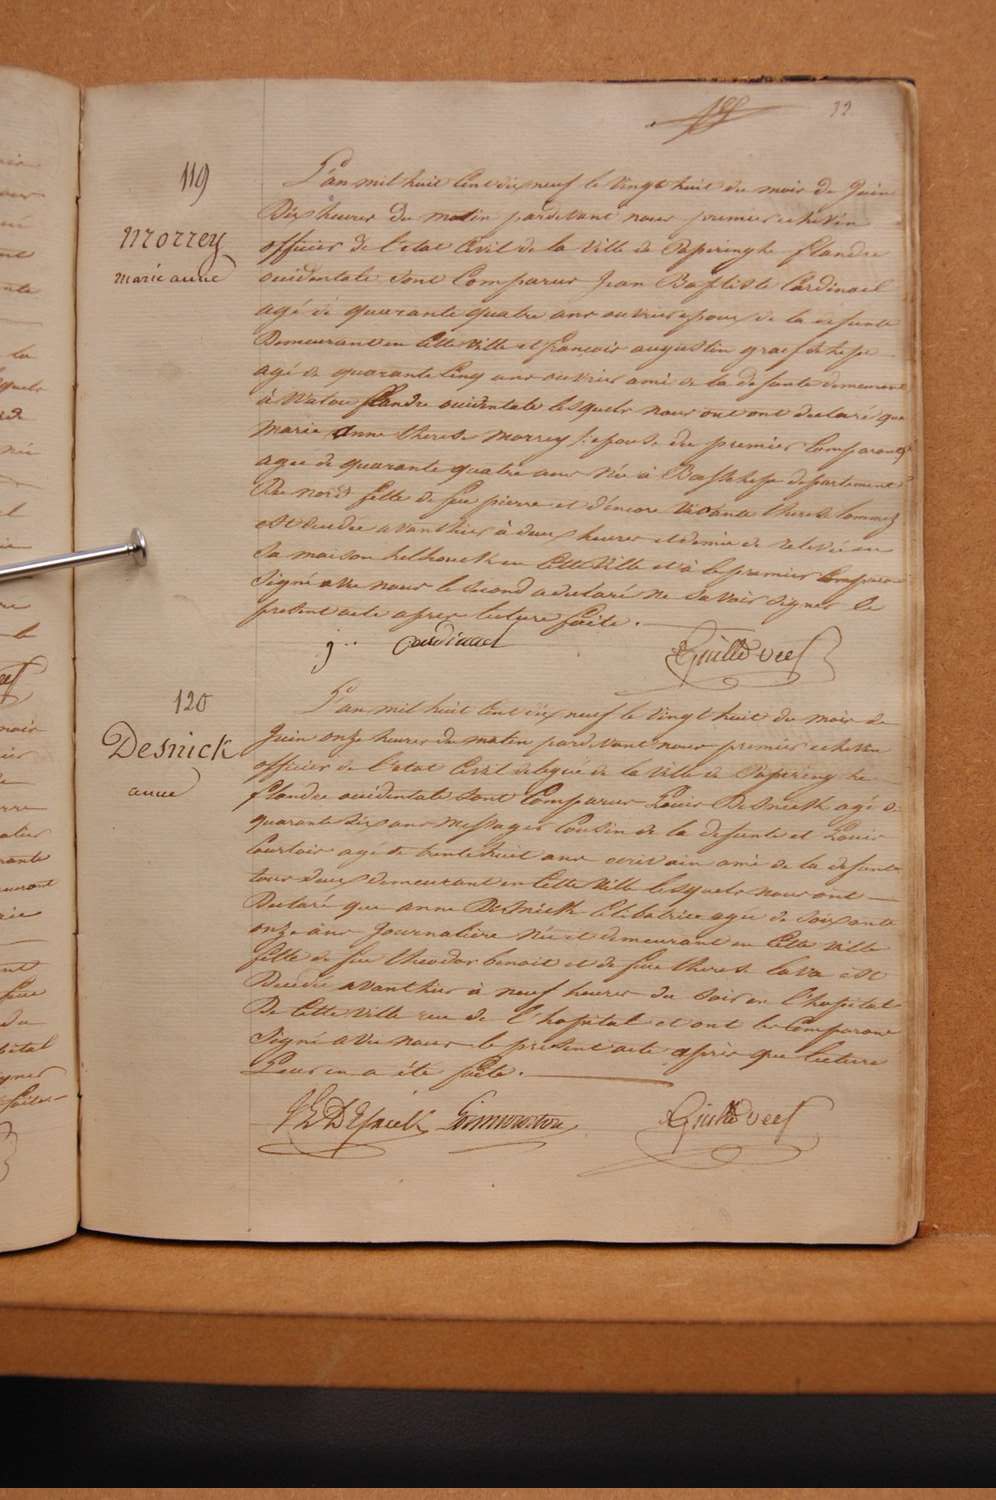 32
119
Morrey
marie anne
L'an mil huit Cent dix neuf le vingt huit du mois de Juin
Dix heures du matin pardevant nous premier echevin
officier de l'etat Civil de la ville de Poperinghe flandre
occidentale sont Comparus Jean Baptiste Cardinael
agé de quarante quatre ans ouvrier epoux de la defunte
Demeurant en Cette Ville et francois augustin
agé de quarante Cinq ans ouvrier ami de la defunte demeurant
à Watou flandre occidentale lesquels nous ont ont declaré que
Marie Anne therese Morrey epouse du premier Comparant
agée de quarante quatre ans née à departement
Du nord fille de feu pierre et d'encore vivante therese
est decedée avanthier à deux heures et demie de relevée en
Sa maison en Cette Ville et à le premier Comparant
Signé avec nous le second a declaré ne savoir signer le
present acte apres lecture faite.
j.. Cardinael
120
Desnick
anne
L'an mil huit Cent dix neuf le vingt huit du mois de
Juin onze heures du matin pardevant nous premier echevin
officier de l'etat Civil delegué de la ville de Poperinghe
flandre occidentale sont Comparus Louis Desnick agé de
quarante six ans Messager Cousin de la defunte et Louis
agé de trente huit ans ecrivain ami de la defunte
tous deux demeurant en Cette Ville lesquels nous ont
Declaré que anne Desnick Celibatrice agée de soixante
onze ans Journaliere née et demeurant en Cette Ville
fille de feu theodor benoit et de feue therese est
Decedée avanthier à neuf heures du soir en l'hospital
De Cette Ville rue de l'hospital et ont les Comparans
Signé avec nous le present acte après que lecture
Leur en a été faite.